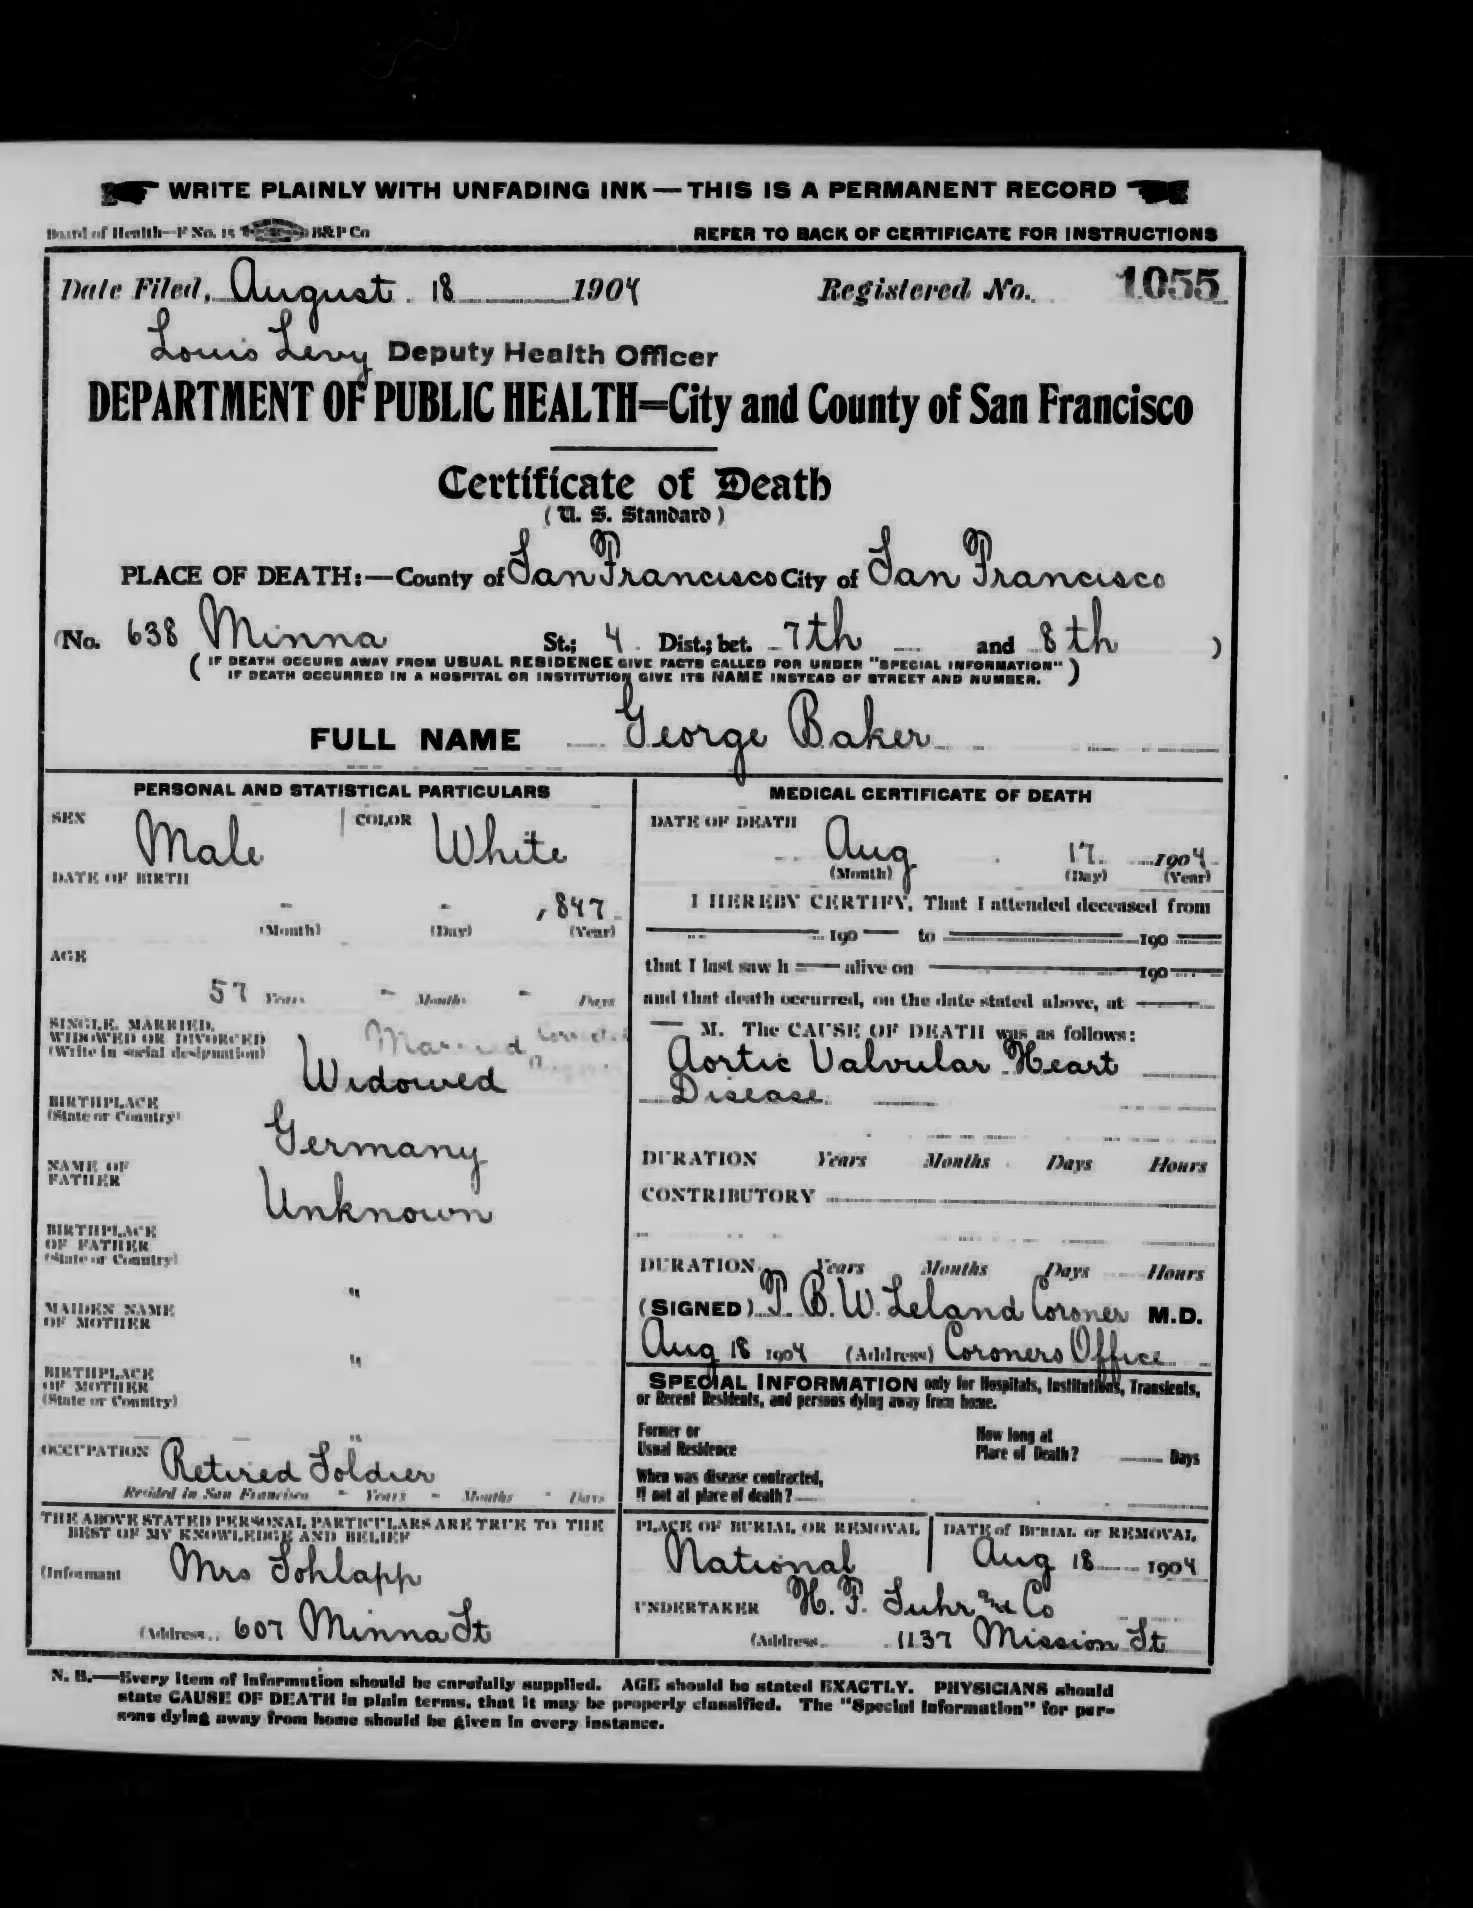 WRITE PLAINLY WITH UNFADING INK — THIS IS A PERMANENT RECORD
Board of Health—F No. 15 B&P Co
REFER TO BACK OF CERTIFICATE FOR INSTRUCTIONS
Date Filed, August 18 1904 Registered No. 1055
Louis Levy Deputy Health Officer
DEPARTMENT OF PUBLIC HEALTH=City and County of San Francisco
Certificate of Death
(U. S. Standard)
PLACE OF DEATH:—County of San Francisco City of San Francisco
(No. 638 Minna St.; 4 Dist.; bet. 7th and 8th )
(IF DEATH OCCURS AWAY FROM USUAL RESIDENCE GIVE FACTS CALLED FOR UNDER "SPECIAL INFORMATION"
IF DEATH OCCURRED IN A HOSPITAL OR INSTITUTION GIVE ITS NAME INSTEAD OF STREET AND NUMBER.)
FULL NAME George Baker
PERSONAL AND STATISTICAL PARTICULARS
SEX Male COLOR White
DATE OF BIRTH
- - , 847
(Month) (Day) (Year)
AGE
57 Years - Months - Days
SINGLE, MARRIED,
WIDOWED OR DIVORCED
(Write in social designation)
Married
Widowed
BIRTHPLACE
(State or Country)
Germany
NAME OF
FATHER
Unknown
BIRTHPLACE
OF FATHER
(State or Country)
"
MAIDEN NAME
OF MOTHER
"
BIRTHPLACE
OF MOTHER
(State or Country)
"
OCCUPATION Retired Soldier
Resided in San Francisco - Years - Months - Days
THE ABOVE STATED PERSONAL PARTICULARS ARE TRUE TO THE
BEST OF MY KNOWLEDGE AND BELIEF
(Informant Mrs Sohlapp
(Address 607 Minna St
MEDICAL CERTIFICATE OF DEATH
DATE OF DEATH
Aug 17 1904
(Month) (Day) (Year)
I HEREBY CERTIFY, That I attended deceased from
190 to 190
that I last saw h alive on 190
and that death occurred, on the date stated above, at
M. The CAUSE OF DEATH was as follows:
Aortic Valvular Heart
Disease
DURATION Years Months Days Hours
CONTRIBUTORY
DURATION Years Months Days Hours
(SIGNED) T. B. W. Leland Coroner M.D.
Aug 18 1904 (Address) Coroners Office
SPECIAL INFORMATION only for Hospitals, Institutions, Transients,
or Recent Residents, and persons dying away from home.
Former or
Usual Residence
How long at
Place of Death? Days
When was disease contracted,
If not at place of death?
PLACE OF BURIAL OR REMOVAL
National
DATE of BURIAL or REMOVAL
Aug 18 1904
UNDERTAKER H. F. Suhr and Co
(Address 1137 Mission St
N. B.—Every item of information should be carefully supplied. AGE should be stated EXACTLY. PHYSICIANS should
state CAUSE OF DEATH in plain terms, that it may be properly classified. The "Special Information" for per-
sons dying away from home should be given in every instance.